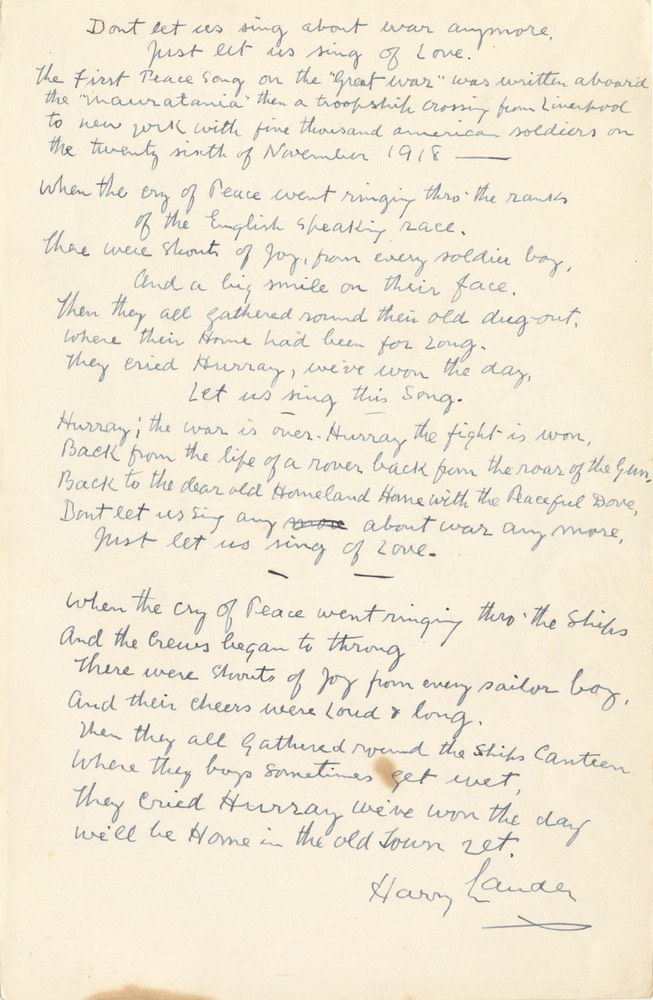 Dont let us sing about war anymore,
Just let us sing of Love.
The First Peace Song on the "Great War" was written aboard
the "Mauratania" then a troopship crossing from Liverpool
to new york with five thousand american soldiers on
the twenty sixth of November 1918 —
When the cry of Peace went ringing thro' the ranks
of the English speaking race.
There were shouts of Joy, from every soldier boy,
And a big smile on their face.
Then they all gathered round their old dug-out,
Where their Home had been for Long.
They cried Hurray, we've won the day,
Let us sing this Song.
Hurray; the war is over. Hurray the fight is won,
Back from the life of a rover back from the roar of the Gun,
Back to the dear old Homeland Home with the Peaceful Dove,
Dont let us sing any more about war any more,
Just let us sing of Love.
When the cry of Peace went ringing thro' the Ships
And the Crews began to throng
There were shouts of Joy from every sailor boy,
And their cheers were Loud & long.
Then they all Gathered round the Ships Canteen
Where they boys sometimes get wet,
They Cried Hurray we've won the day
We'll be Home in the old Town yet.
Harry Lauder